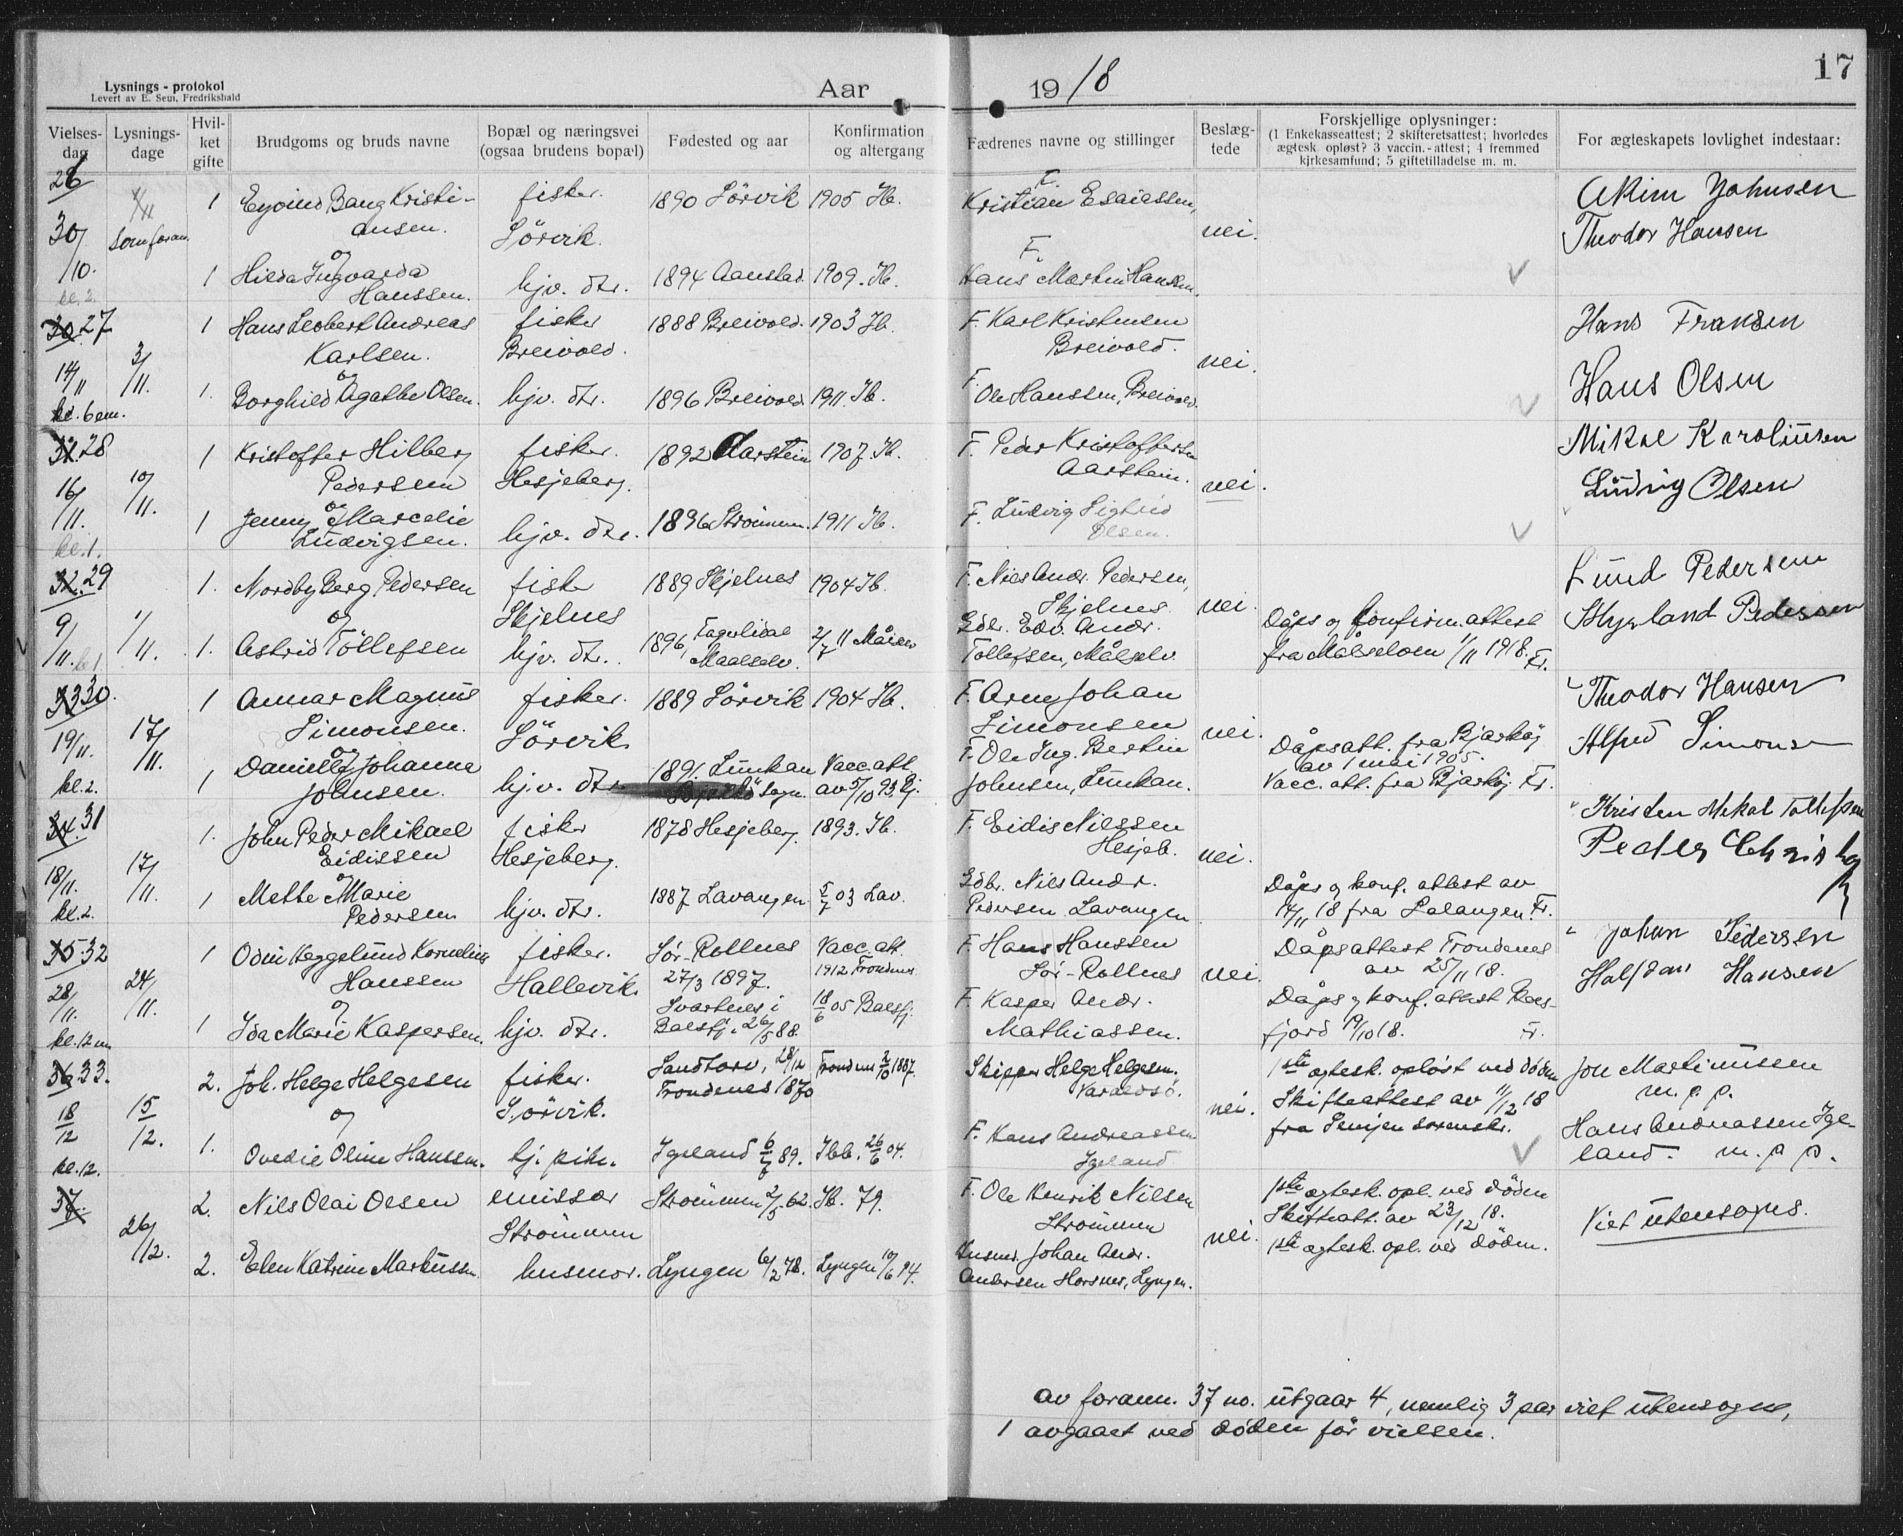 Lysnings - protokol
Levert av E. Sem, Fredrikshald
Aar
1918
17
Vielses-dag
Lysnings-dage
Hvil-ket gifte
Brudgoms og bruds navne
Bopæl og næringsvei (ogsaa brudens bopæl)
Fødested og aar
Konfirmation og altergang
Fædrenes navne og stillinger
Beslæg-tede
Forskjellige oplysninger:
(1 Enkekasseattest; 2 skifteretsattest; hvorledes
ægtesk opløst? 3 vaccin.-attest; 4 fremmed
kirkesamfund; 5 giftetilladelse m. m.
For ægteskapets lovlighet indestaar:
26 1 Eyvind Bang Kristi- fisker. 1890 Sörvik 1905 Ib. F. Kristian Esaiassen, Akim Johnsen
30/ som foran. ansen. Sörvik. nei. Theodor Hansen
/10. og F.
kl. 2. 1 Hilda Ingvarda hjv. dtr. 1894 Aanstad 1909. Ib. Hans Martin Hanssen.
Hanssen.
30. 27 1 Hans Leobert Andreas fisker 1888 Breivold. 1903 Ib. F. Karl Kristensen Hans Fransen
Karlsen. Breivold. Breivold. nei.
14/11 3/11. og F. Hans Olsen
kl. 6 em. 1. Borghild Agathe Olsen. hjv. dtr. 1896 Breivold 1911. Ib. Ole Hanssen, Breivold.
31. 28 1 Kristoffer Hilberg fisker. 1892 Aarstein 1907. Ib. F. Peder Kristoffersen Mikal Karoliusen
Pedersen Hesjeberg. Aarstein. nei. Ludvig Olsen
16/11. 10/11. og
kl. 1. 1 Jenny Marcelie hjv. dtr. 1896 Strömmen. 1911 Ib. F. Ludvig Sigfrid
Ludvigsen. Olsen.
32. 29 1. Nordby Berg Pedersen fisker 1889 Skjelnes 1904 Ib. F. Nils Andr. Pedersen, Lund Pedersen
og Skjelnes Skjelnes. nei.
9/11. kl 1 1/11. 1. Astrid Töllefsen hjv. dtr. 1896, Fagerlidal Maalselv. 2/7 11 Målselv Gdbr. Edv. Andr. Tollefsen, Målselv Dåps og konfirm.attest fra Målselven 1/11 1918. Fr. Skyrland Pedersen
33 30. 1 Annar Magnus fisker. 1889 Sörvik 1904 Ib. F. Arne Johan Theodor Hansen
Simonsen. Sörvik Simonsen nei.
19/11. 17/11. og F. Ole Ing. Bertin Dåpsatt. fra Bjarköy Alfred Simonsen
kl. 2. 1 Danielle Johanna hjv. dtr. 1891. Lemkan Vacc. att. Johnsen, Lemkan. av 1 mai 1905.
Johnsen. sogn. av 5/10 93. Bj. Vacc. att. fra Bjarköy Fr.
34. 31 1. John Peder Mikael fisker 1878 Hesjeberg. 1893. Ib. F. Eidis Nilssen Kristen Mikal Tollefsen
Eidissen Hesjeberg. Hesjeb. nei. Peder
18/11. 17/11 og Gdbr. Nils Andr. Dåps og konf. attest av
kl. 2. 1 Mette Marie hjv. dtr. 1887 Lavangen 5/7 03 Lav. Pedersen Lavangen 14/11 18 fra Salangen. Fr.
Pedersen
35. 32 1 Odin Heggelund Kornelius fisker. Sör-Rollnes Vacc. att. F. Hans Hanssen Dåpsattest Trondenes Johan Pedersen
Hanssen Hallevik. 27/3 1897. 1912 Trondenes Sör-Rollnes nei. av 25/11 18. Halfdan Hansen
28/11. 24/11. og Svartnes i 18/6 05 Balsfj. F. Kasper Andr. Dåps og konf. attest
kl. 12 1 Ida Marie Kaspersen. hjv. dtr. Balsfj. 26/5 88. Mathiassen. fjord 19/10 18. Fr.
36 33. 2. Joh. Helge Helgesen fisker. Sandtorv, 28/12 Trondenes 1887. Skipper Helge Helgesen. 1ste ægtesk. oplöst ved döden Jon Martinussen
og Sörvik. Trondenes 1870 Varaldsö. nei. Skifteattest av 11/12 18 m. p. p.
18/12 15/12. fra Senjen sorenskr. Hans Andreassen Ige-
kl. 12. 1. Ovedie Oline Hanssen. hj. pike. Igeland 6/7 89. Ibb. 26/6 04. F. Hans Andreassen land. m. p. p.
Igeland
37. 2. Nils Olai Olsen emissær Strömmen 2/5 62. Ib. 79. F. Ole Henrik Nilsen 1ste ægtesk. opl. ved döden
26/12. Strömmen Strömmen nei. Skifteatt. av 23/12 18. Viet utensogns.
2. Elen Katrine Markussen husmor. Lyngen 6/2 78. Lyngen 10/6 94. Husmd. Johan Andr. 1ste ægtesk. opl. ved döden.
Andersen Horsnes, Lyngen.
av forann. 37 no. utgaar 4, nemlig 3 par viet utensogns,
1 avgaaet ved döden för vielsen.